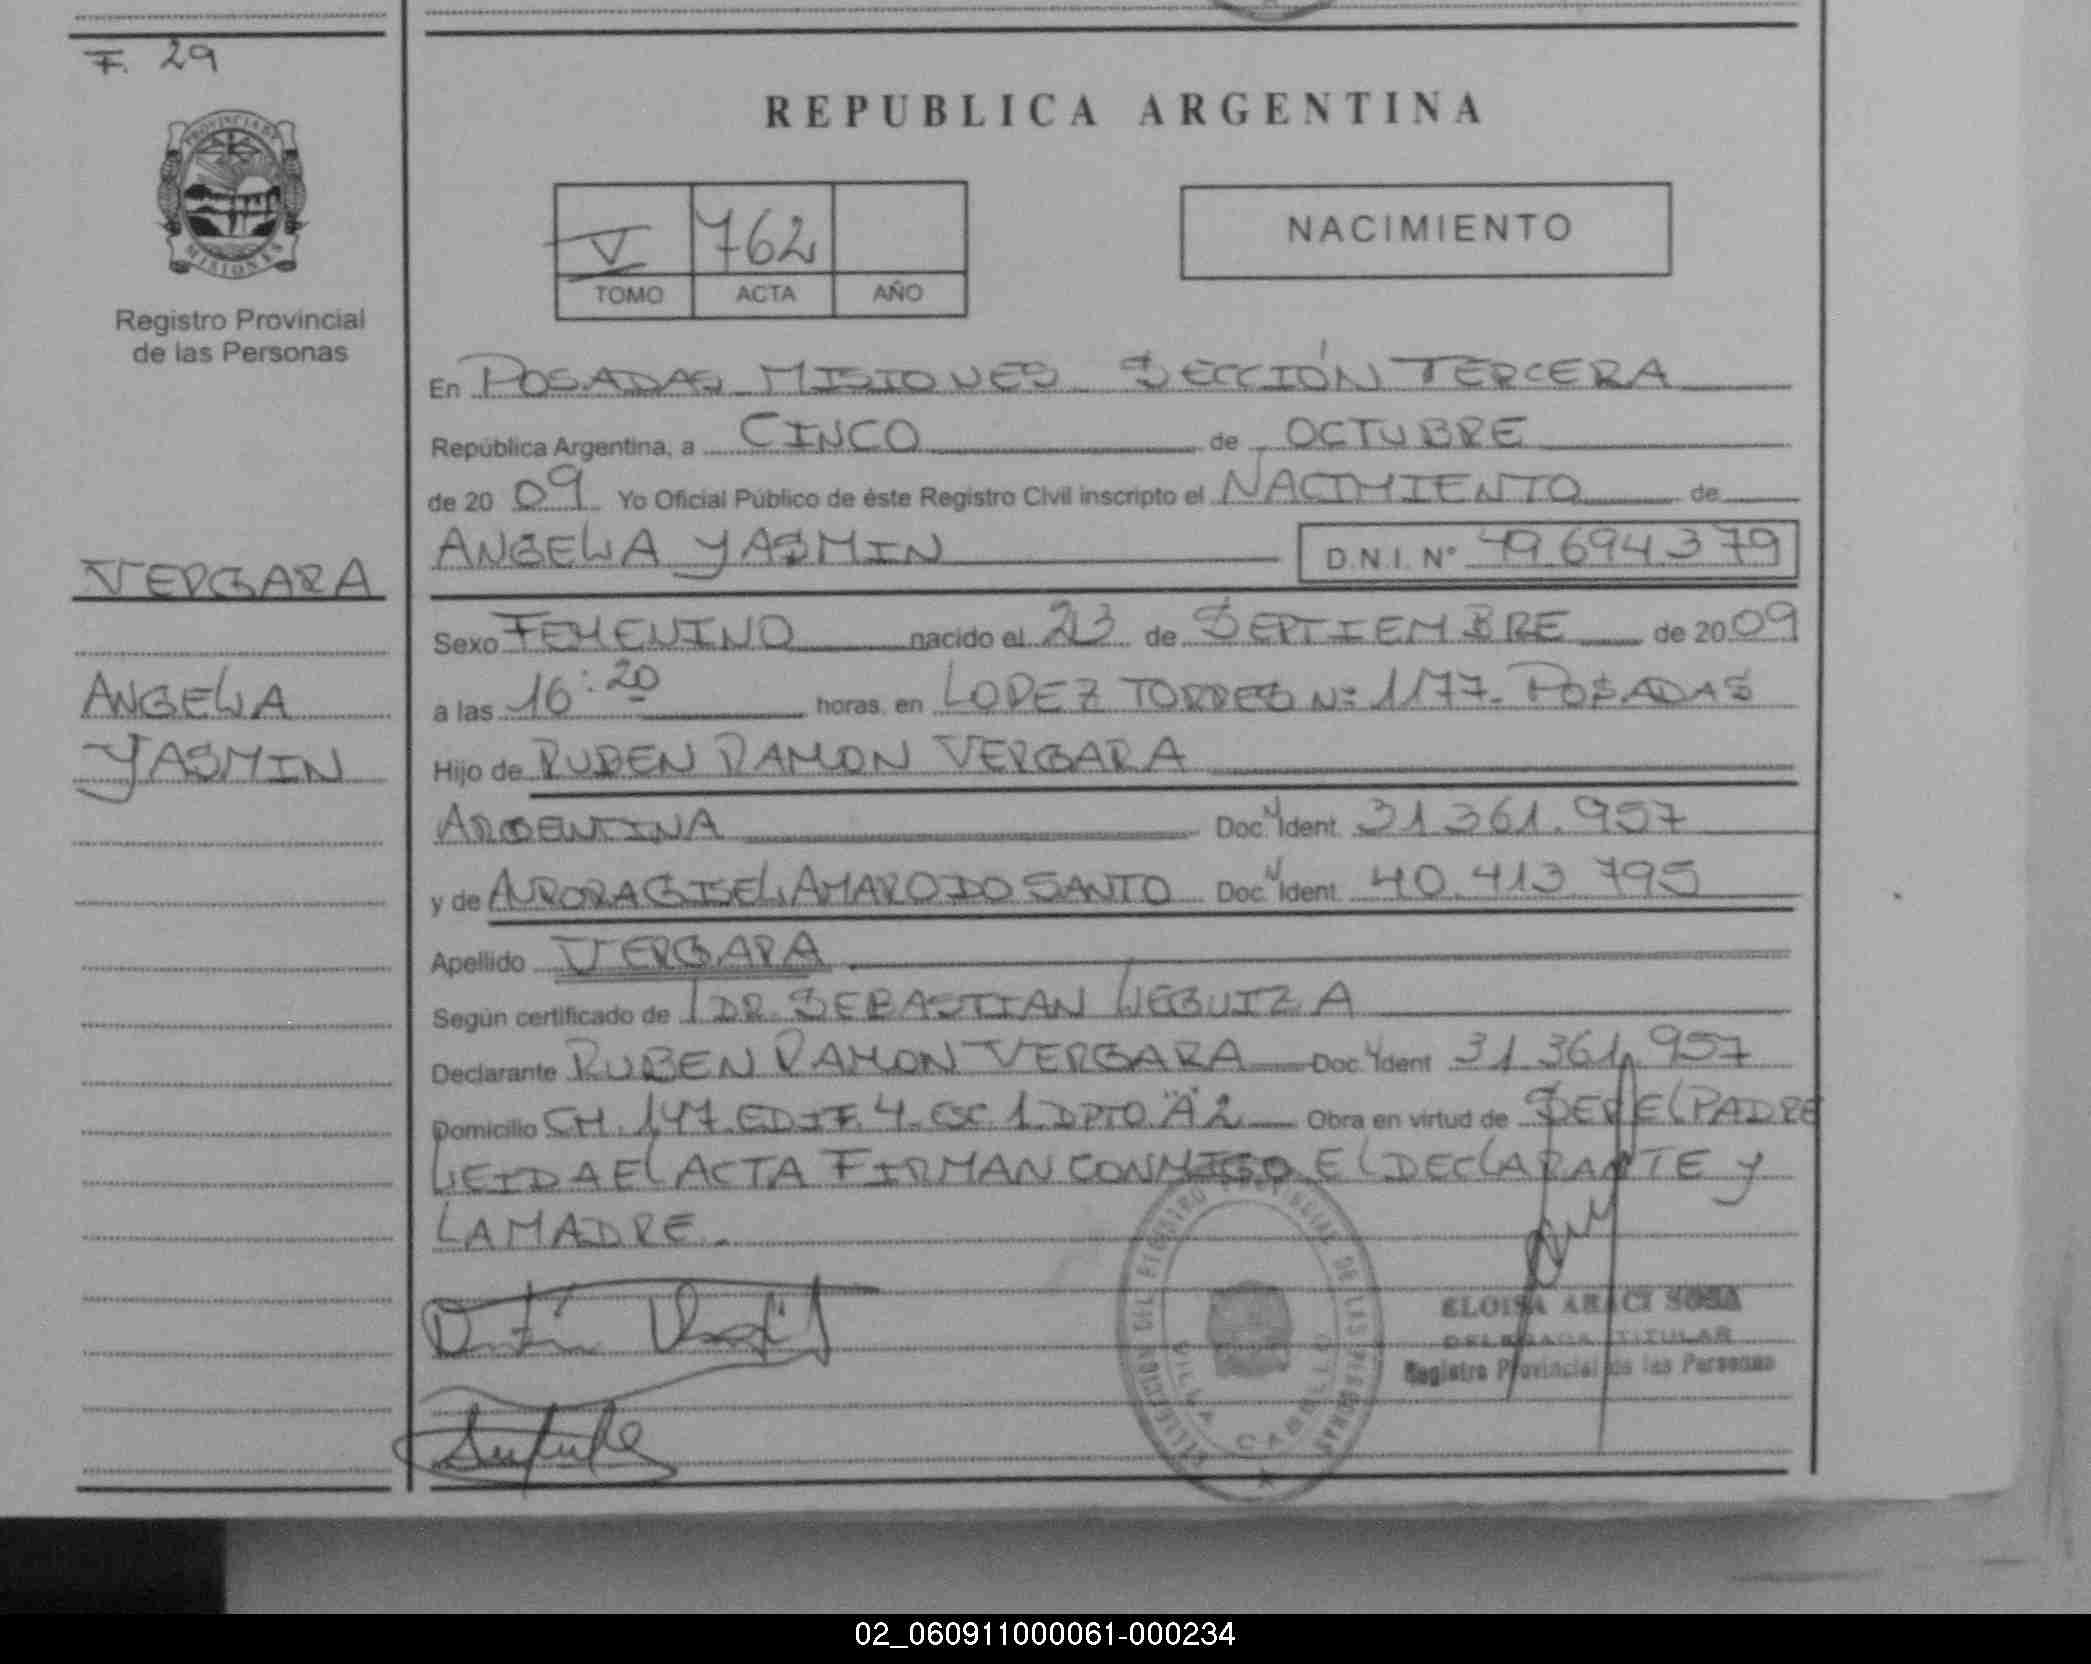 F. 29
PROVINCIA DE
MISIONES
Registro Provincial
de las Personas
VERGARA
ANGELA
YASMIN
REPUBLICA ARGENTINA
V 762
TOMO ACTA AÑO
NACIMIENTO
En POSADAS MISIONES SECCIÓN TERCERA
República Argentina, a CINCO de OCTUBRE
de 20 09 Yo Oficial Público de éste Registro Civil inscripto el NACIMIENTO de
ANGELA YASMIN D.N.I. N° 49.694.379
Sexo FEMENINO nacido el 23 de SEPTIEMBRE de 20 09
a las 16:20 horas, en LOPEZ TORRES Nº 1177- POSADAS
Hijo de RUBEN RAMON VERGARA
ARGENTINA Doc. y Ident. 31.361.957
y de AURORA GISEL AMARO DO SANTO Doc. y Ident. 40.413.795
Apellido VERGARA
Según certificado de DR. SEBASTIAN LEGUIZA
Declarante RUBEN RAMON VERGARA Doc. y Ident 31.361.957
Domicilio CH. 147. EDIF. 4. ESC. 1. DPTO. "A" 2 Obra en virtud de SER EL PADRE
LEIDA EL ACTA FIRMAN CONMIGO EL DECLARANTE Y
LA MADRE.
DELEGACION DEL REGISTRO PROVINCIAL DE LAS PERSONAS
VILLA CABELLO
ELOISA ARACI SOSA
DELEGADA TITULAR
Registro Provincial de las Personas
02_060911000061-000234